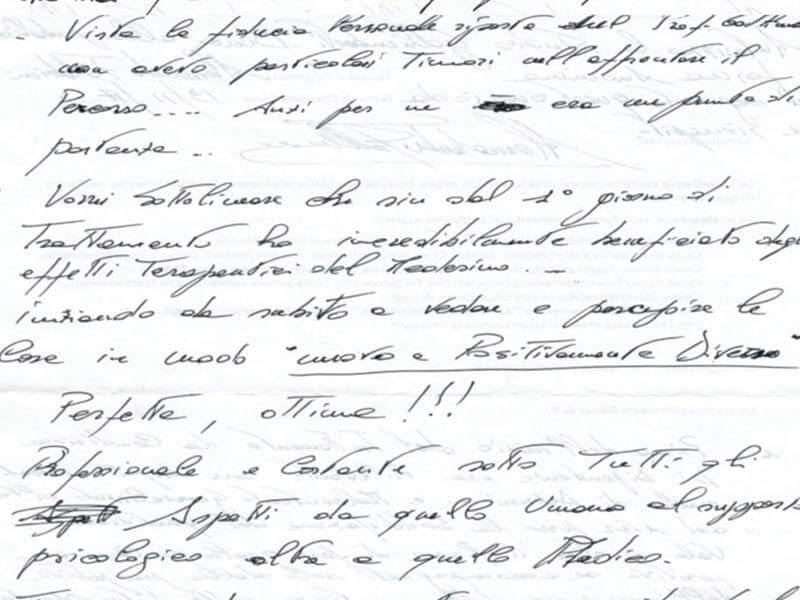 - Vista la fiducia Personale riposta dal Prof.
non avevo particolari Timori nell'affrontare il
Percorso.... Anzi per me era un punto di
partenza ..
Vorrei Sottolineare che sin dal 1° giorno di
Trattamento ho incredibilmente beneficiato degli
effetti Terapeutici del Medesimo. -
iniziando da subito a vedere e percepire le
Cose in modo "nuovo e Positivamente Diverso"
Perfetta, ottima !!!
Professionale e Costante sotto Tutti gli
Aspetti da quello Umano al supporto
psicologico oltre a quello Medico.